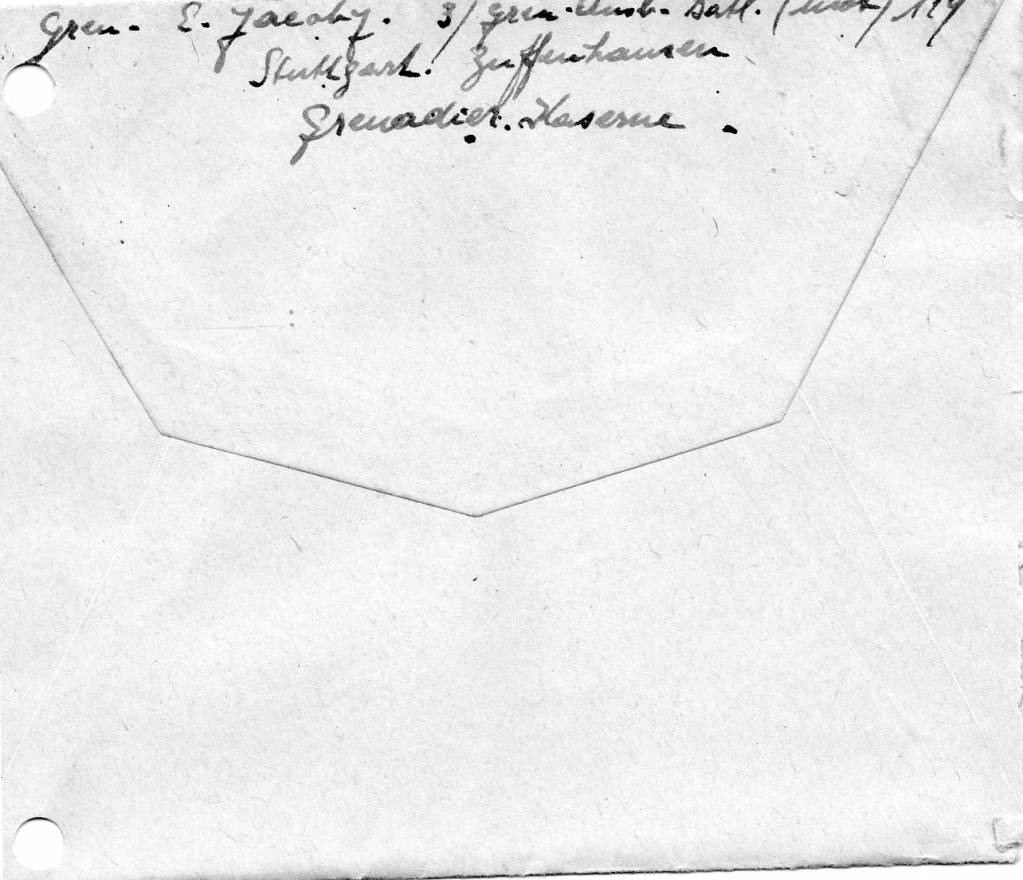 Gren. E. Jacoby. 3/ Gren. Ausb. Batl. (mot) 119
Stuttgart. Zuffenhausen
Grenadier. Kaserne.